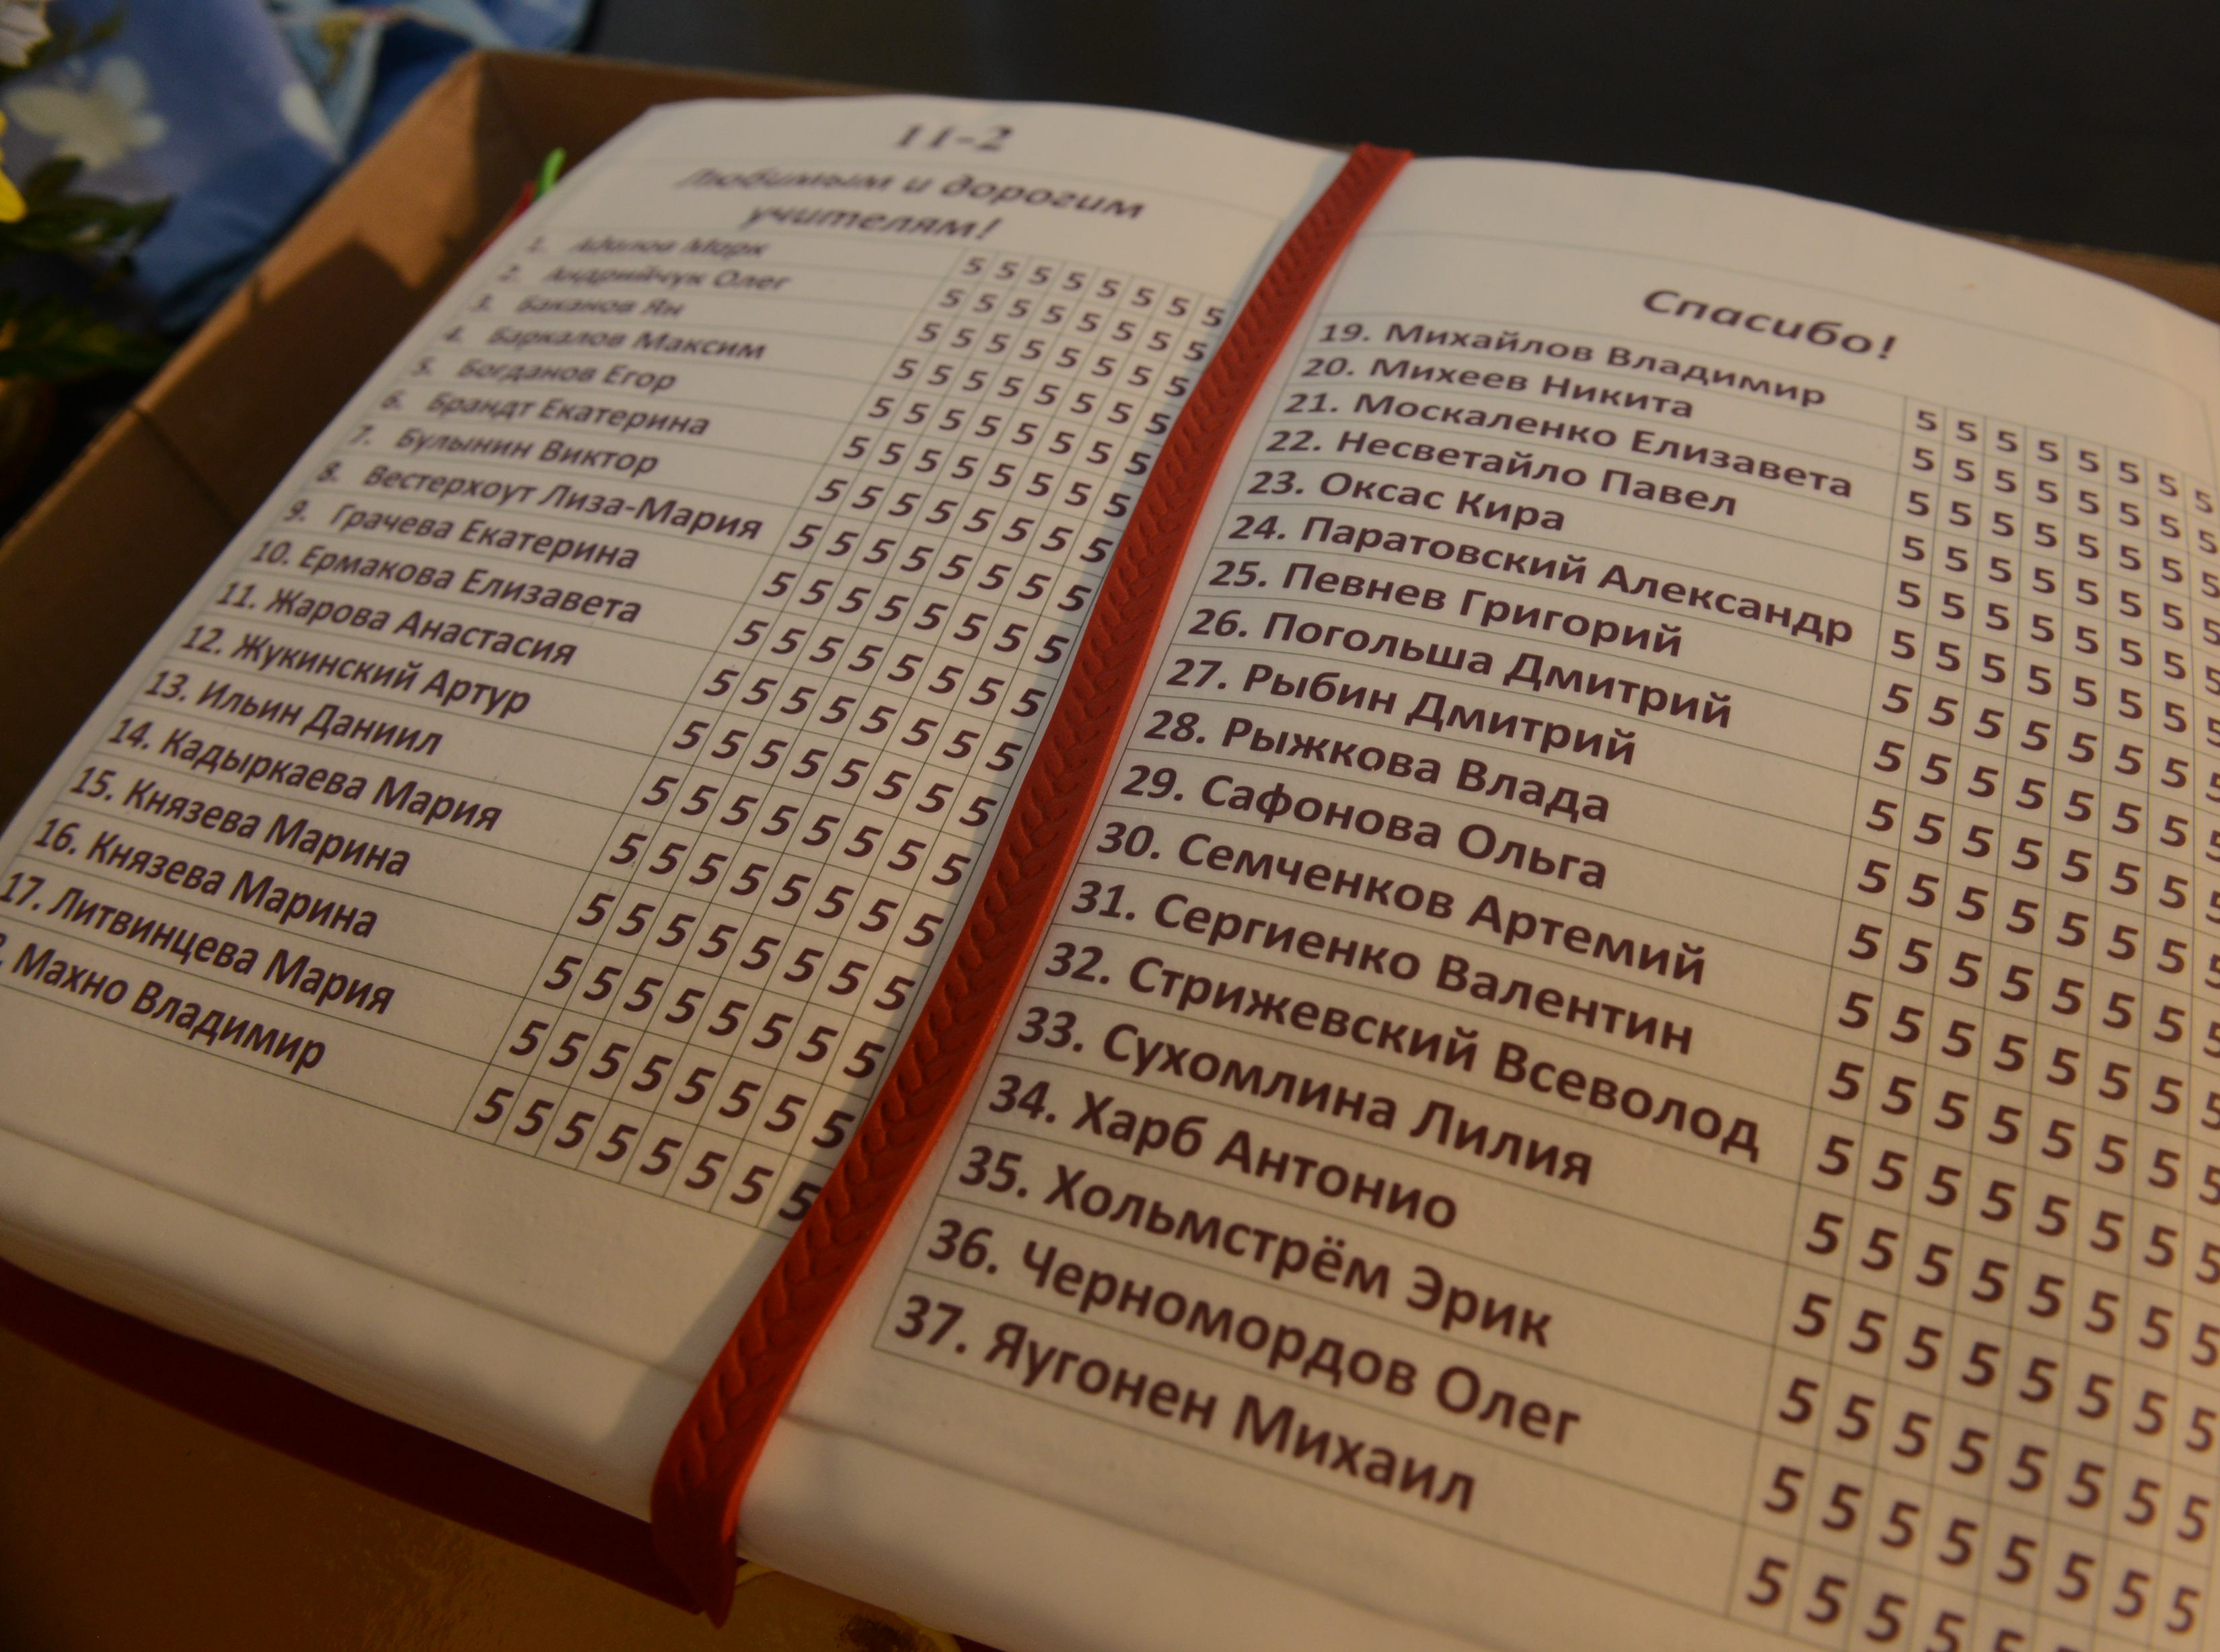 11-2
Любимым и дорогим
учителям!
1. Марк 5 5 5 5 5 5 5 5
2. Андрийчук Олег 5 5 5 5 5 5 5 5
3. Баканов Ян 5 5 5 5 5 5 5 5
4. Баркалов Максим 5 5 5 5 5 5 5 5
5. Богданов Егор 5 5 5 5 5 5 5 5
6. Брандт Екатерина 5 5 5 5 5 5 5 5
7. Булынин Виктор 5 5 5 5 5 5 5 5
8. Вестерхоут Лиза-Мария 5 5 5 5 5 5 5 5
9. Грачева Екатерина 5 5 5 5 5 5 5 5
10. Ермакова Елизавета 5 5 5 5 5 5 5 5
11. Жарова Анастасия 5 5 5 5 5 5 5 5
12. Жукинский Артур 5 5 5 5 5 5 5 5
13. Ильин Даниил 5 5 5 5 5 5 5 5
14. Кадыркаева Мария 5 5 5 5 5 5 5 5
15. Князева Марина 5 5 5 5 5 5 5 5
16. Князева Марина 5 5 5 5 5 5 5 5
17. Литвинцева Мария 5 5 5 5 5 5 5 5
Махно Владимир 5 5 5 5 5 5 5 5
Спасибо!
19. Михайлов Владимир 5 5 5 5 5 5 5 5
20. Михеев Никита 5 5 5 5 5 5 5 5
21. Москаленко Елизавета 5 5 5 5 5 5 5 5
22. Несветайло Павел 5 5 5 5 5 5 5 5
23. Оксас Кира 5 5 5 5 5 5 5 5
24. Паратовский Александр 5 5 5 5 5 5 5 5
25. Певнев Григорий 5 5 5 5 5 5 5 5
26. Погольша Дмитрий 5 5 5 5 5 5 5 5
27. Рыбин Дмитрий 5 5 5 5 5 5 5 5
28. Рыжкова Влада 5 5 5 5 5 5 5 5
29. Сафонова Ольга 5 5 5 5 5 5 5 5
30. Семченков Артемий 5 5 5 5 5 5 5 5
31. Сергиенко Валентин 5 5 5 5 5 5 5 5
32. Стрижевский Всеволод 5 5 5 5 5 5 5 5
33. Сухомлина Лилия 5 5 5 5 5 5 5 5
34. Харб Антонио 5 5 5 5 5 5 5 5
35. Хольмстрём Эрик 5 5 5 5 5 5 5 5
36. Черномордов Олег 5 5 5 5 5 5 5 5
37. Яугонен Михаил 5 5 5 5 5 5 5 5